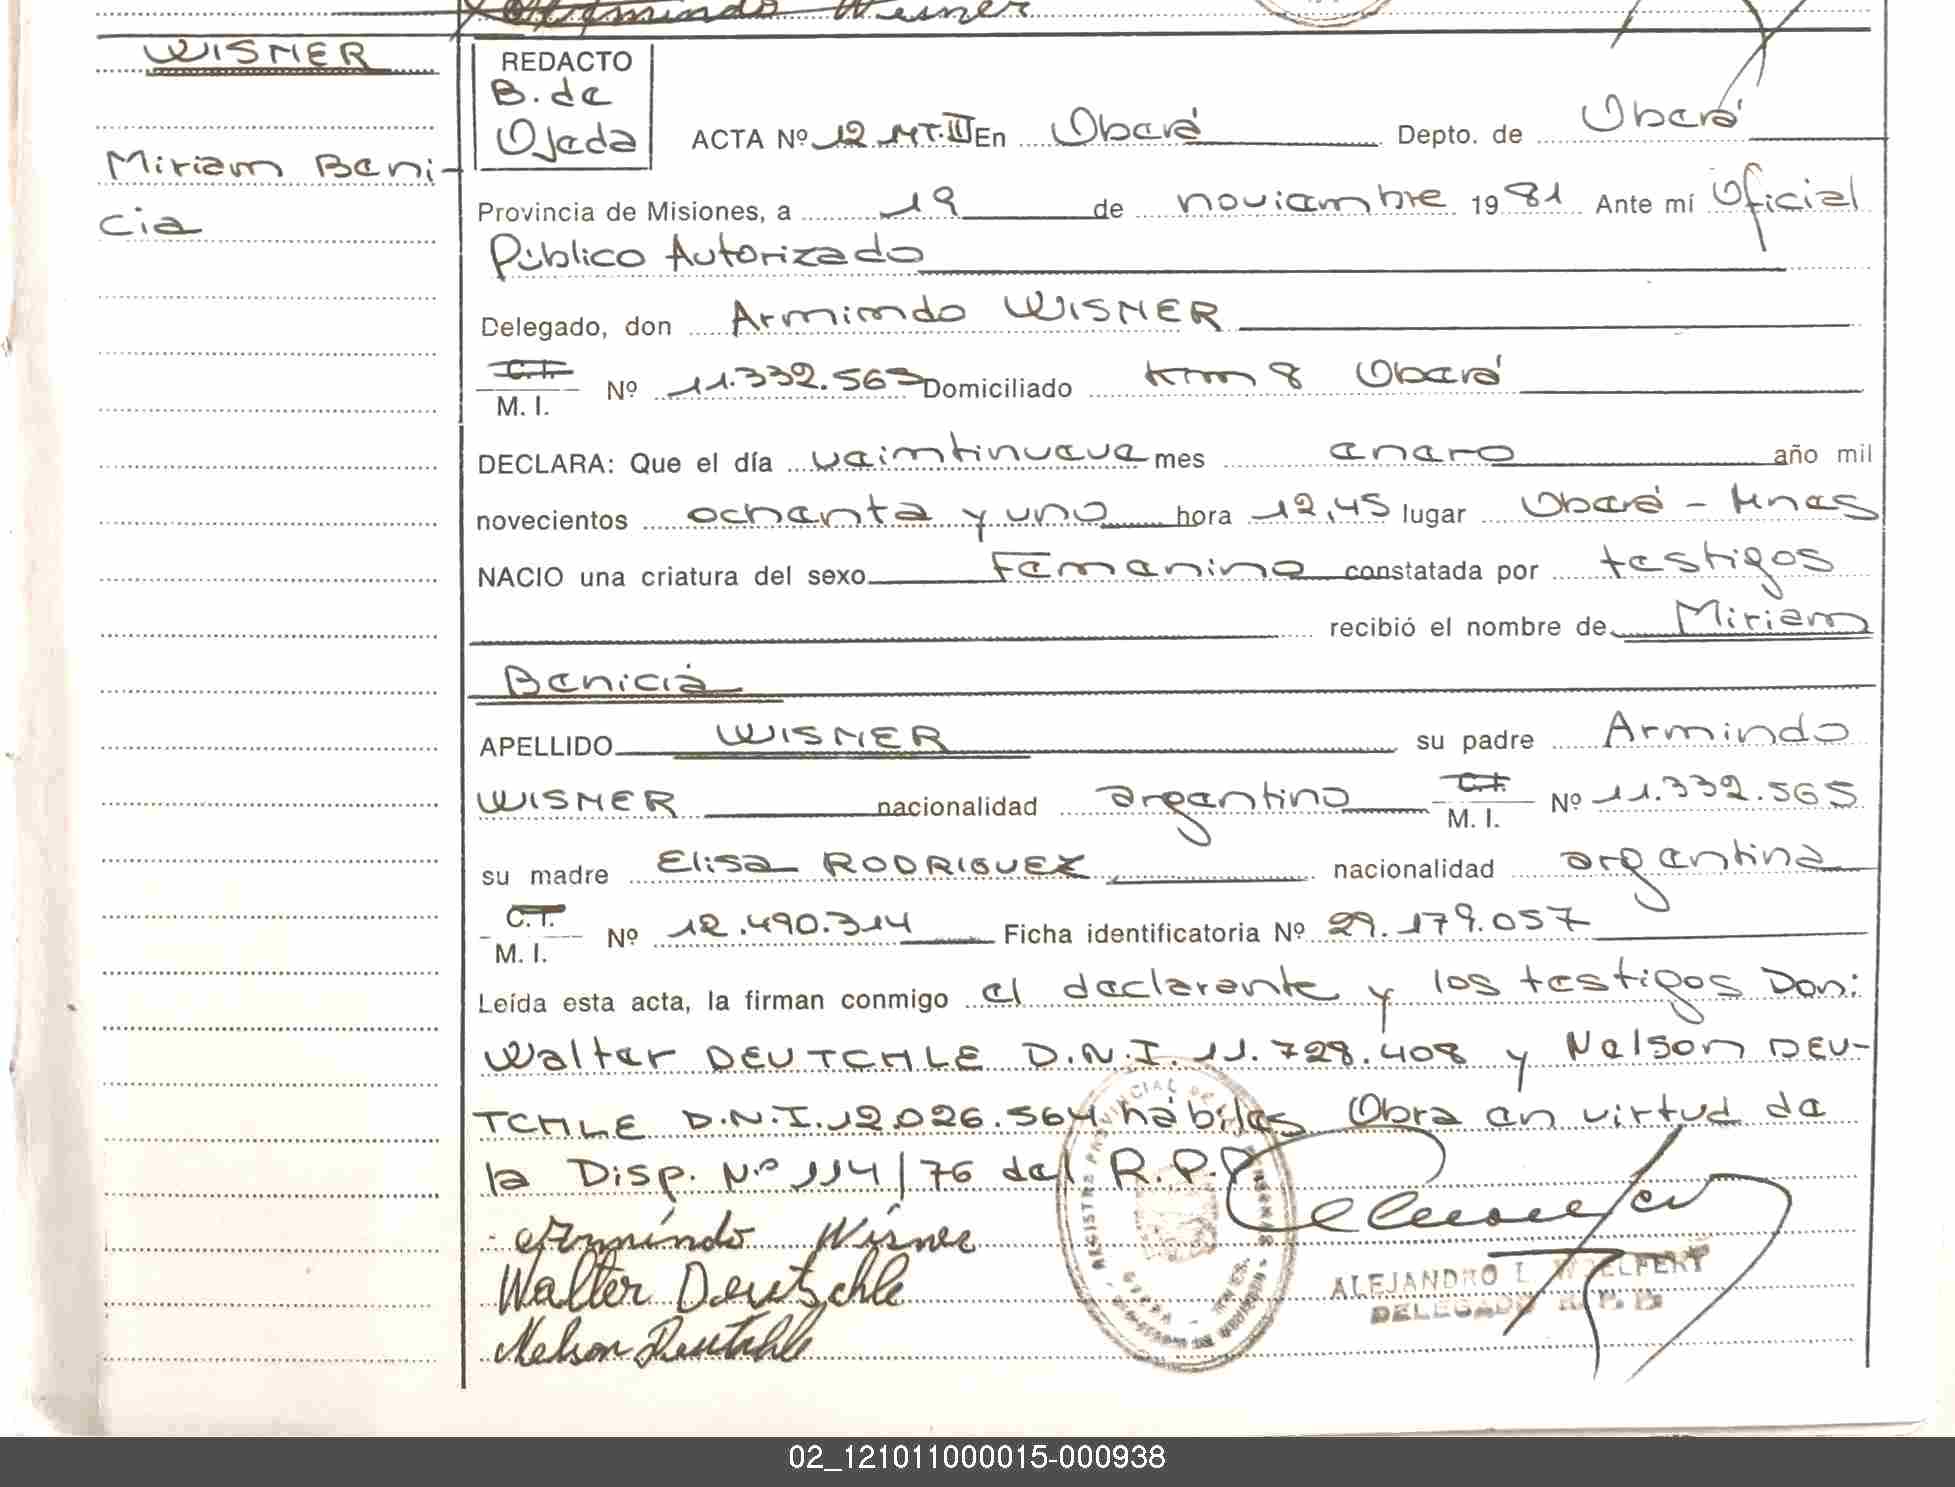 Armindo Wisner
WISNER
Miriam Beni-
cia
REDACTO
B. de
Ojeda
ACTA Nº 12 MT.III En Oberá Depto. de Oberá
Provincia de Misiones, a 19 de noviembre 1981 Ante mí Oficial
Público Autorizado
Delegado, don Armindo WISNER
C.I.
M. I. Nº 11.332.563 Domiciliado Km 8 Oberá
DECLARA: Que el día veintinueve mes enero año mil
novecientos ochenta y uno hora 12,45 lugar Oberá - Mnes
NACIO una criatura del sexo Femenino constatada por testigos
recibió el nombre de Miriam
Benicia
APELLIDO WISNER su padre Armindo
WISNER nacionalidad argentino C.I.
M. I. Nº 11.332.565
su madre Elisa RODRIGUEZ nacionalidad argentina
C.I.
M. I. Nº 12.490.314 Ficha identificatoria Nº 29.179.057
Leída esta acta, la firman conmigo el declarante y los testigos Don:
Walter DEUTCHLE D.N.I. 11.728.408 y Nelson DEU-
TCHLE D.N.I. 12.026.564 hábiles Obra en virtud de
la Disp. Nº 114/76 del R.P.P
Armindo Wisner
Walter Deutschle
Nelson Deutchle
REGISTRO PROVINCIAL DE LAS PERSONAS
OBERA
MNES.
ALEJANDRO L. WOELFERT
DELEGADO R. P. P.
02_121011000015-000938